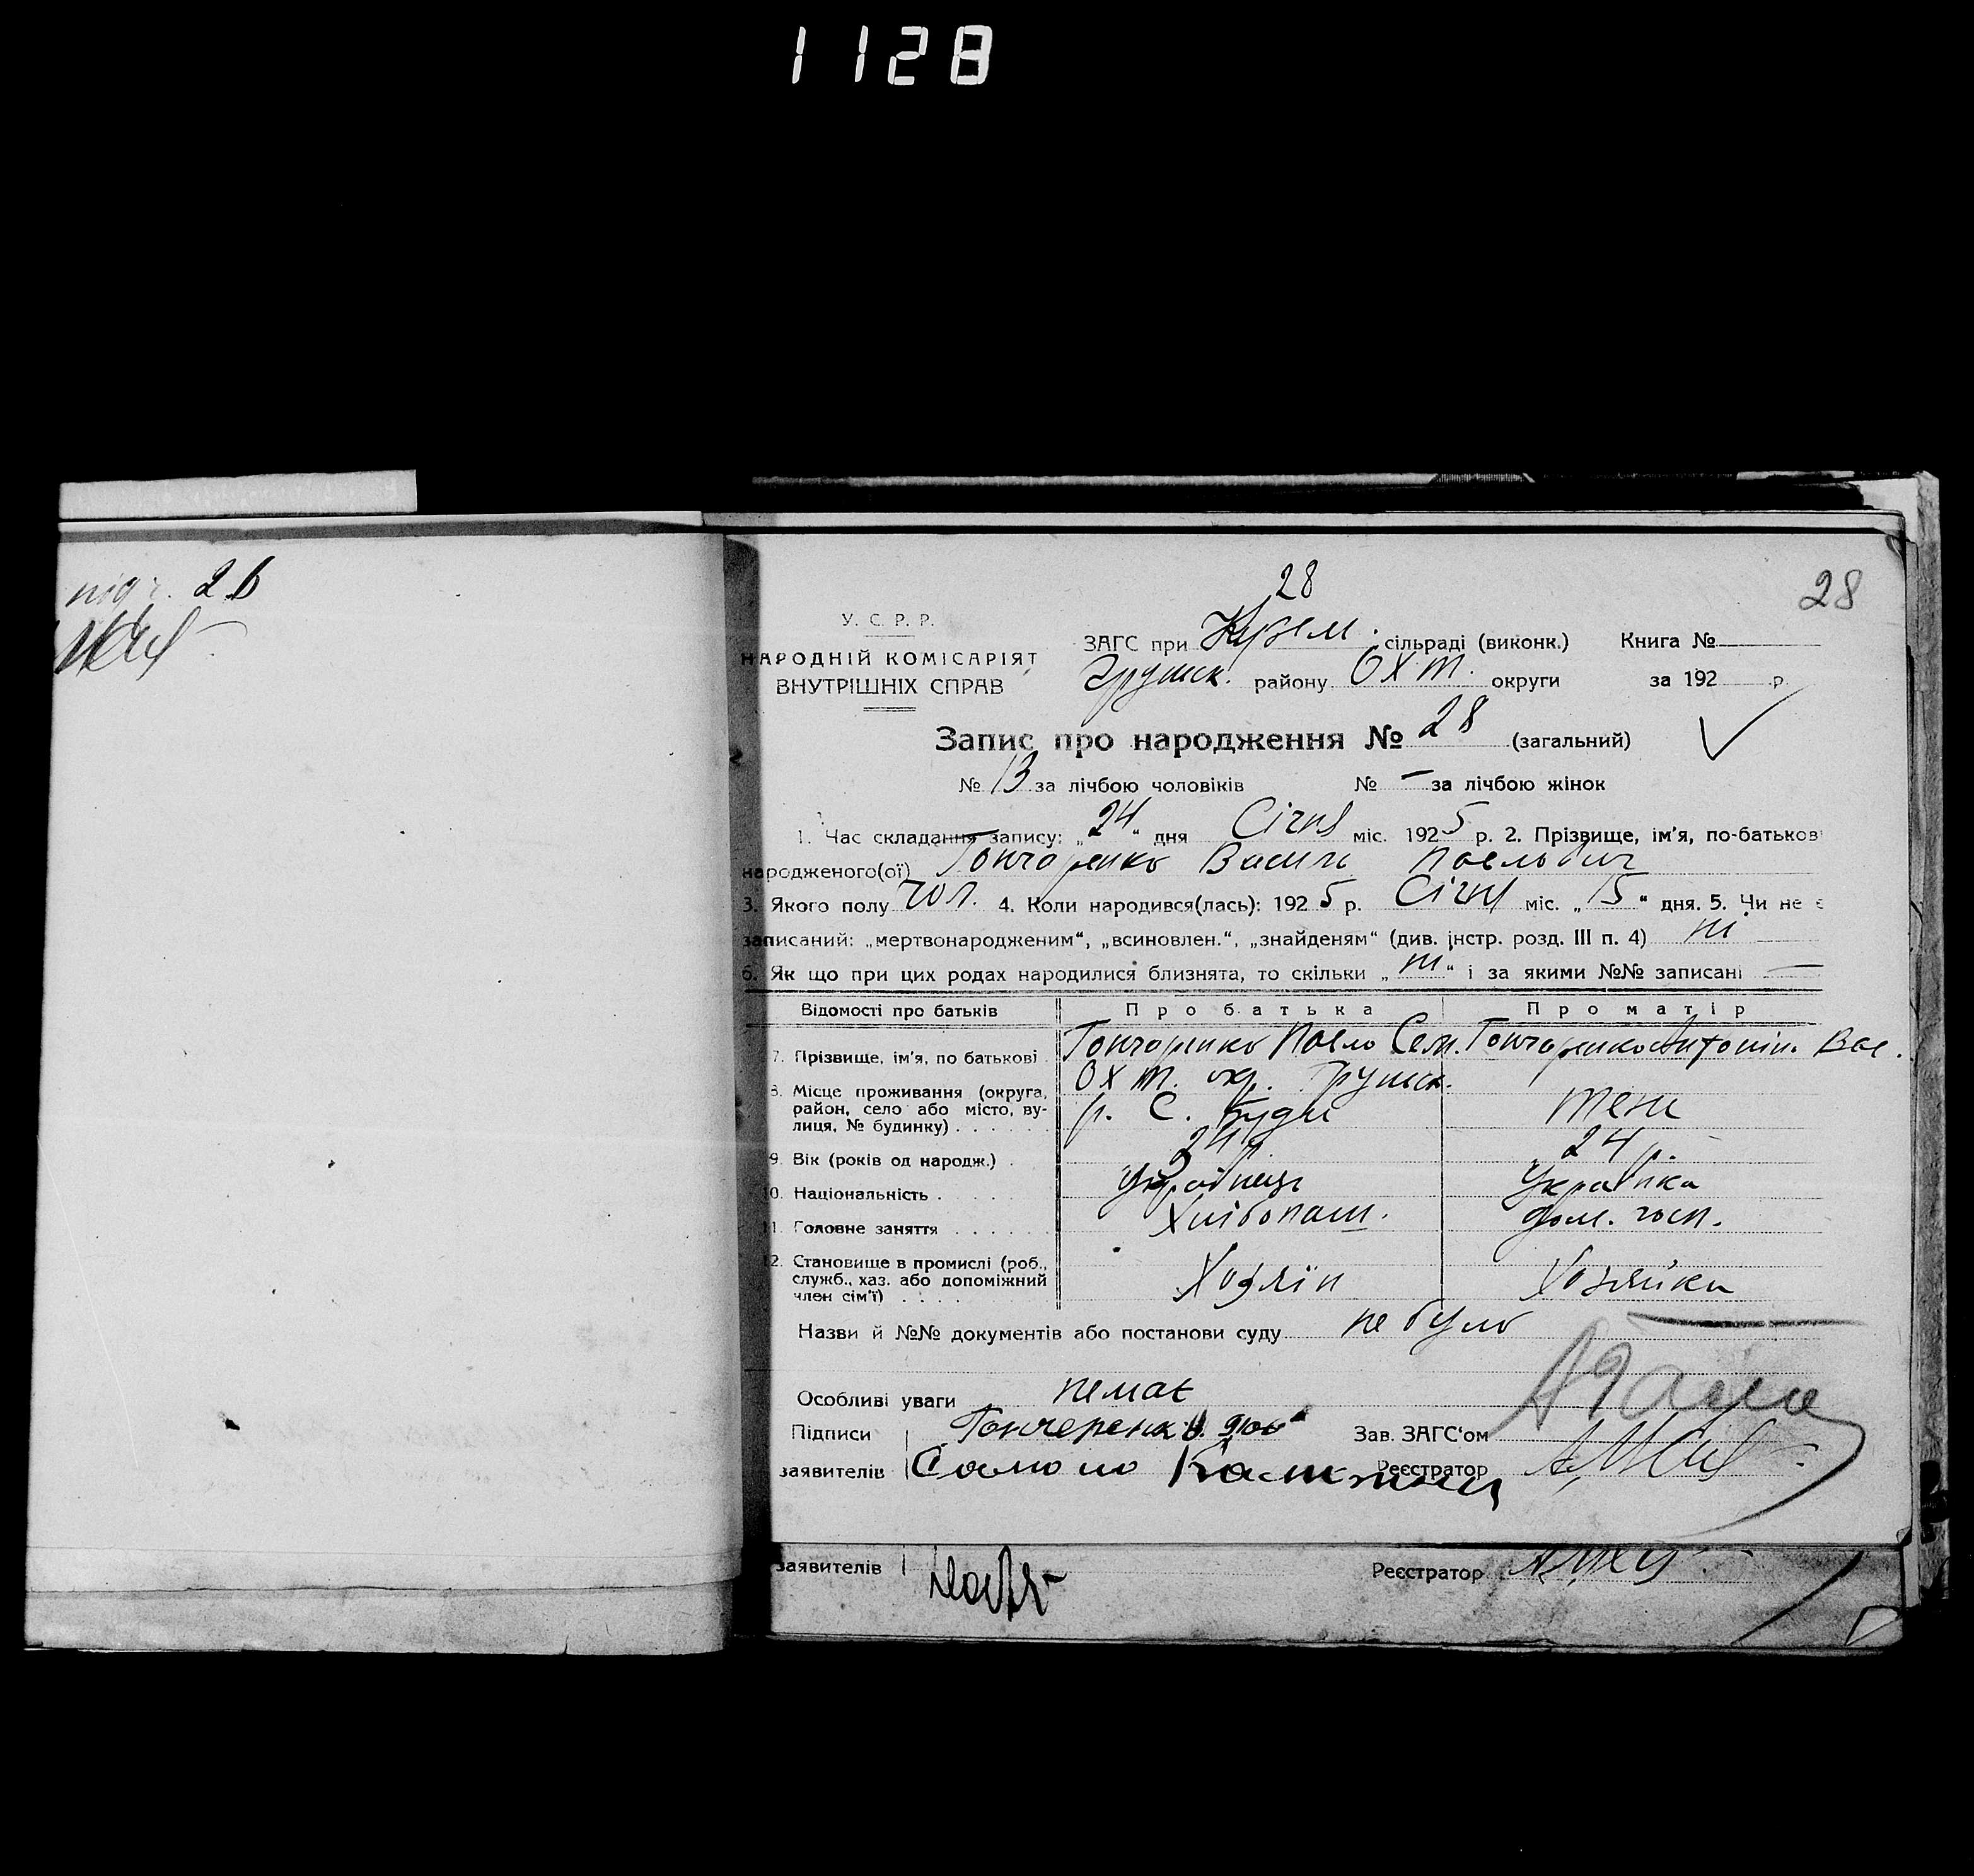 1128
28
28
підп. 26
У. С. Р. Р.
НАРОДНІЙ КОМІСАРІЯТ
ВНУТРІШНІХ СПРАВ
ЗАГС при Кузем. сільраді (виконк.) Книга №
Грунськ. району Охт. округи за 192 р.
Запис про народження № 28 (загальний)
№ 13 за лічбою чоловіків № – за лічбою жінок
1. Час складання запису: „24“ дня Січня міс. 1925 р. 2. Прізвище, ім'я, по-батькові
народженого(ої) Гончаренко Василь Павлович
3. Якого полу чол. 4. Коли народився(лась): 1925 р. Січня міс. „15“ дня. 5. Чи не є
записаний: „мертвонародженим“, „всиновлен.“, „знайденям“ (див. інстр. розд. III п. 4) ні
6. Як що при цих родах народилися близнята, то скільки „ні“ і за якими №№ записані —
Відомості про батьків Про батька Про матір
7. Прізвище, ім'я, по батькові Гончаренко Павло Сем. Гончаренко Антонін. Вас.
8. Місце проживання (округа, район, село або місто, вулиця, № будинку) Охт. окр. Грунськ.
р. С. Буди теж
9. Вік (років од народж.) 24 р. 24 р.
10. Національність Українець Українка
11. Головне заняття Хлібопаш. дом. госп.
12. Становище в промислі (роб., служб., хаз. або допоміжний член сім'ї) Хозяїн Хозяйка
Назви й №№ документів або постанови суду не було
Особливі уваги немає
Підписи Гончеренко Зав. ЗАГС'ом
заявителів Реєстратор
заявителів Реєстратор